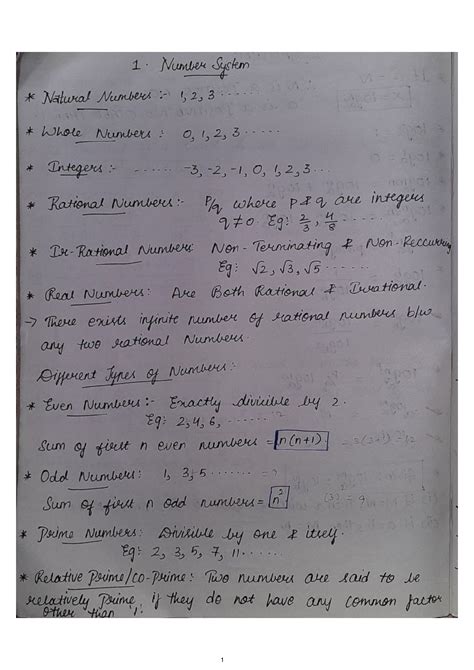 1. Number System
* Natural Numbers :- 1, 2, 3 ......
* Whole Numbers : 0, 1, 2, 3 ......
* Integers :- ...... -3, -2, -1, 0, 1, 2, 3 ...
* Rational Numbers :- P/q where P & q are integers
q ≠ 0. Eg: 2/3, 4/8 ......
* Ir-Rational Number: Non-Terminating & Non-Reccuring
Eg: √2, √3, √5 ......
* Real Numbers: Are Both Rational & Irrational.
→ There exists infinite number of rational numbers b/w
any two rational Numbers.
Different Types of Numbers:
* Even Numbers :- Exactly divisible by 2.
Eg: 2, 4, 6, ......
Sum of first n even numbers = n(n+1)
* Odd Numbers: 1, 3, 5 ......
Sum of first n odd numbers = n²
* Prime Numbers: Divisible by one & itself.
Eg: 2, 3, 5, 7, 11 ......
* Relative Prime/co-Prime: Two numbers are said to be
relatively Prime, if they do not have any common factor
other than '1'.
1